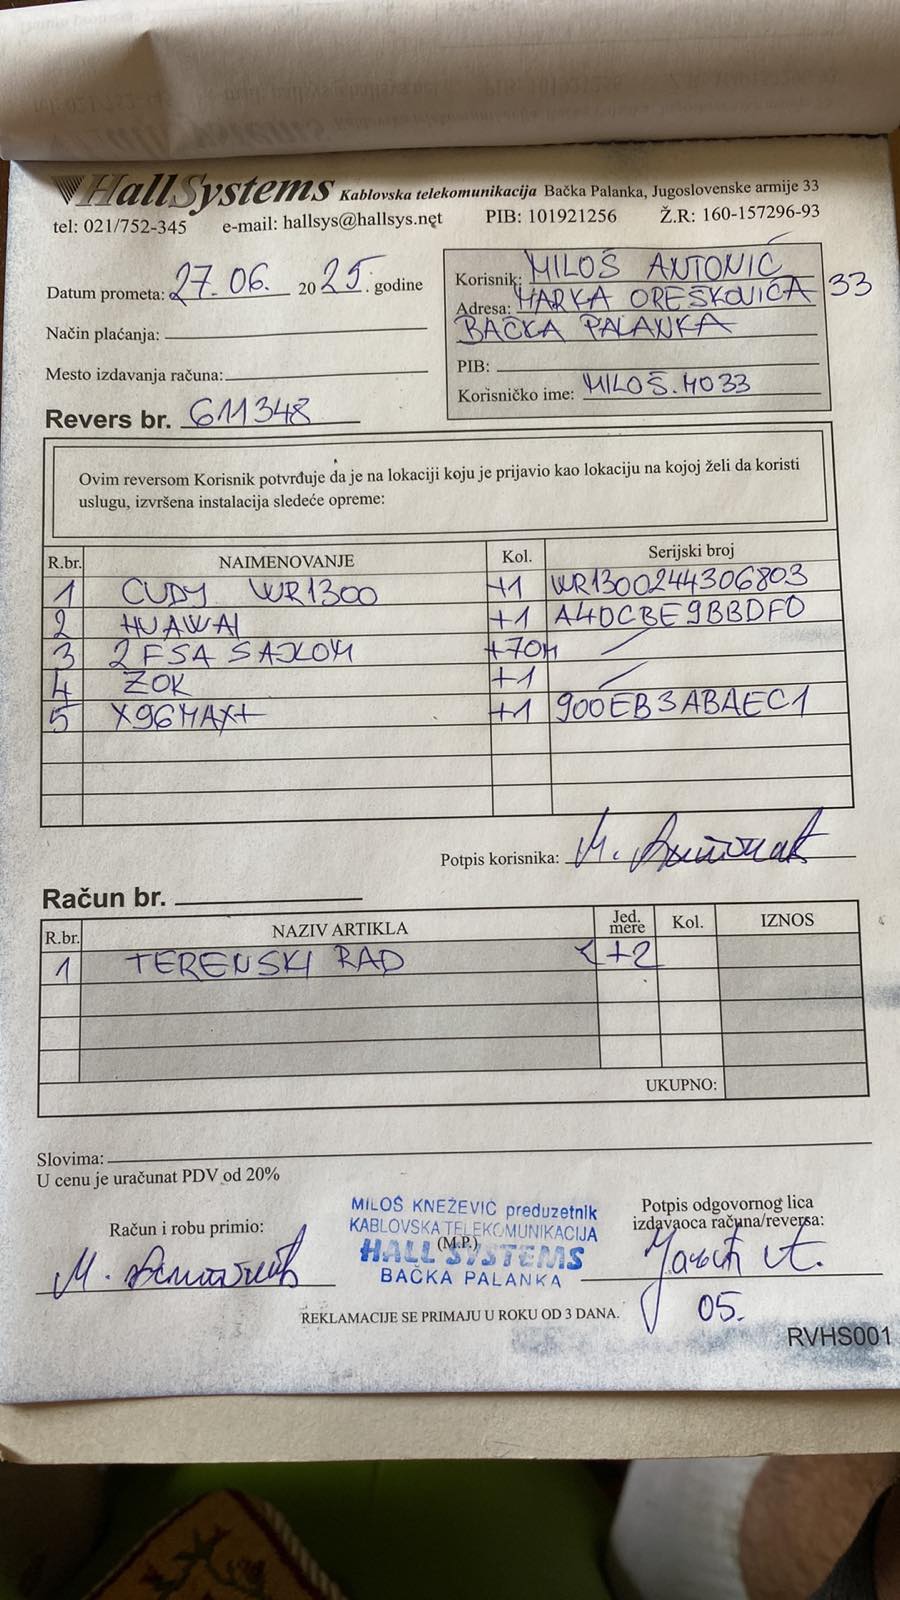 HallSystems Kablovska telekomunikacija Bačka Palanka, Jugoslovenske armije 33
tel: 021/752-345 e-mail: hallsys@hallsys.net PIB: 101921256 Ž.R: 160-157296-93
Datum prometa: 27.06. 2025. godine
Način plaćanja:
Mesto izdavanja računa:
Revers br. 611348
Korisnik: MILOŠ ANTONIĆ
Adresa: MARKA OREŠKOVIĆA 33
BAČKA PALANKA
PIB:
Korisničko ime: MILOŠ.MO33
Ovim reversom Korisnik potvrđuje da je na lokaciji koju je prijavio kao lokaciju na kojoj želi da koristi
uslugu, izvršena instalacija sledeće opreme:
R.br. NAIMENOVANJE Kol. Serijski broj
1 CUDY WR1300 +1 WR1300244306803
2 HUAWAI +1 A40CBE9BBDF0
3 2 FSA SAJLOM +70M /
4 ZOK +1 /
5 X96MAX+ +1 900EB3ABAEC1
Potpis korisnika:
Račun br.
R.br. NAZIV ARTIKLA Jed. mere Kol. IZNOS
1 TERENSKI RAD +2
UKUPNO:
Slovima:
U cenu je uračunat PDV od 20%
Račun i robu primio:
MILOŠ KNEŽEVIĆ preduzetnik
KABLOVSKA TELEKOMUNIKACIJA
(M.P.)
HALL SYSTEMS
BAČKA PALANKA
Potpis odgovornog lica
izdavaoca računa/reversa:
05.
REKLAMACIJE SE PRIMAJU U ROKU OD 3 DANA.
RVHS001